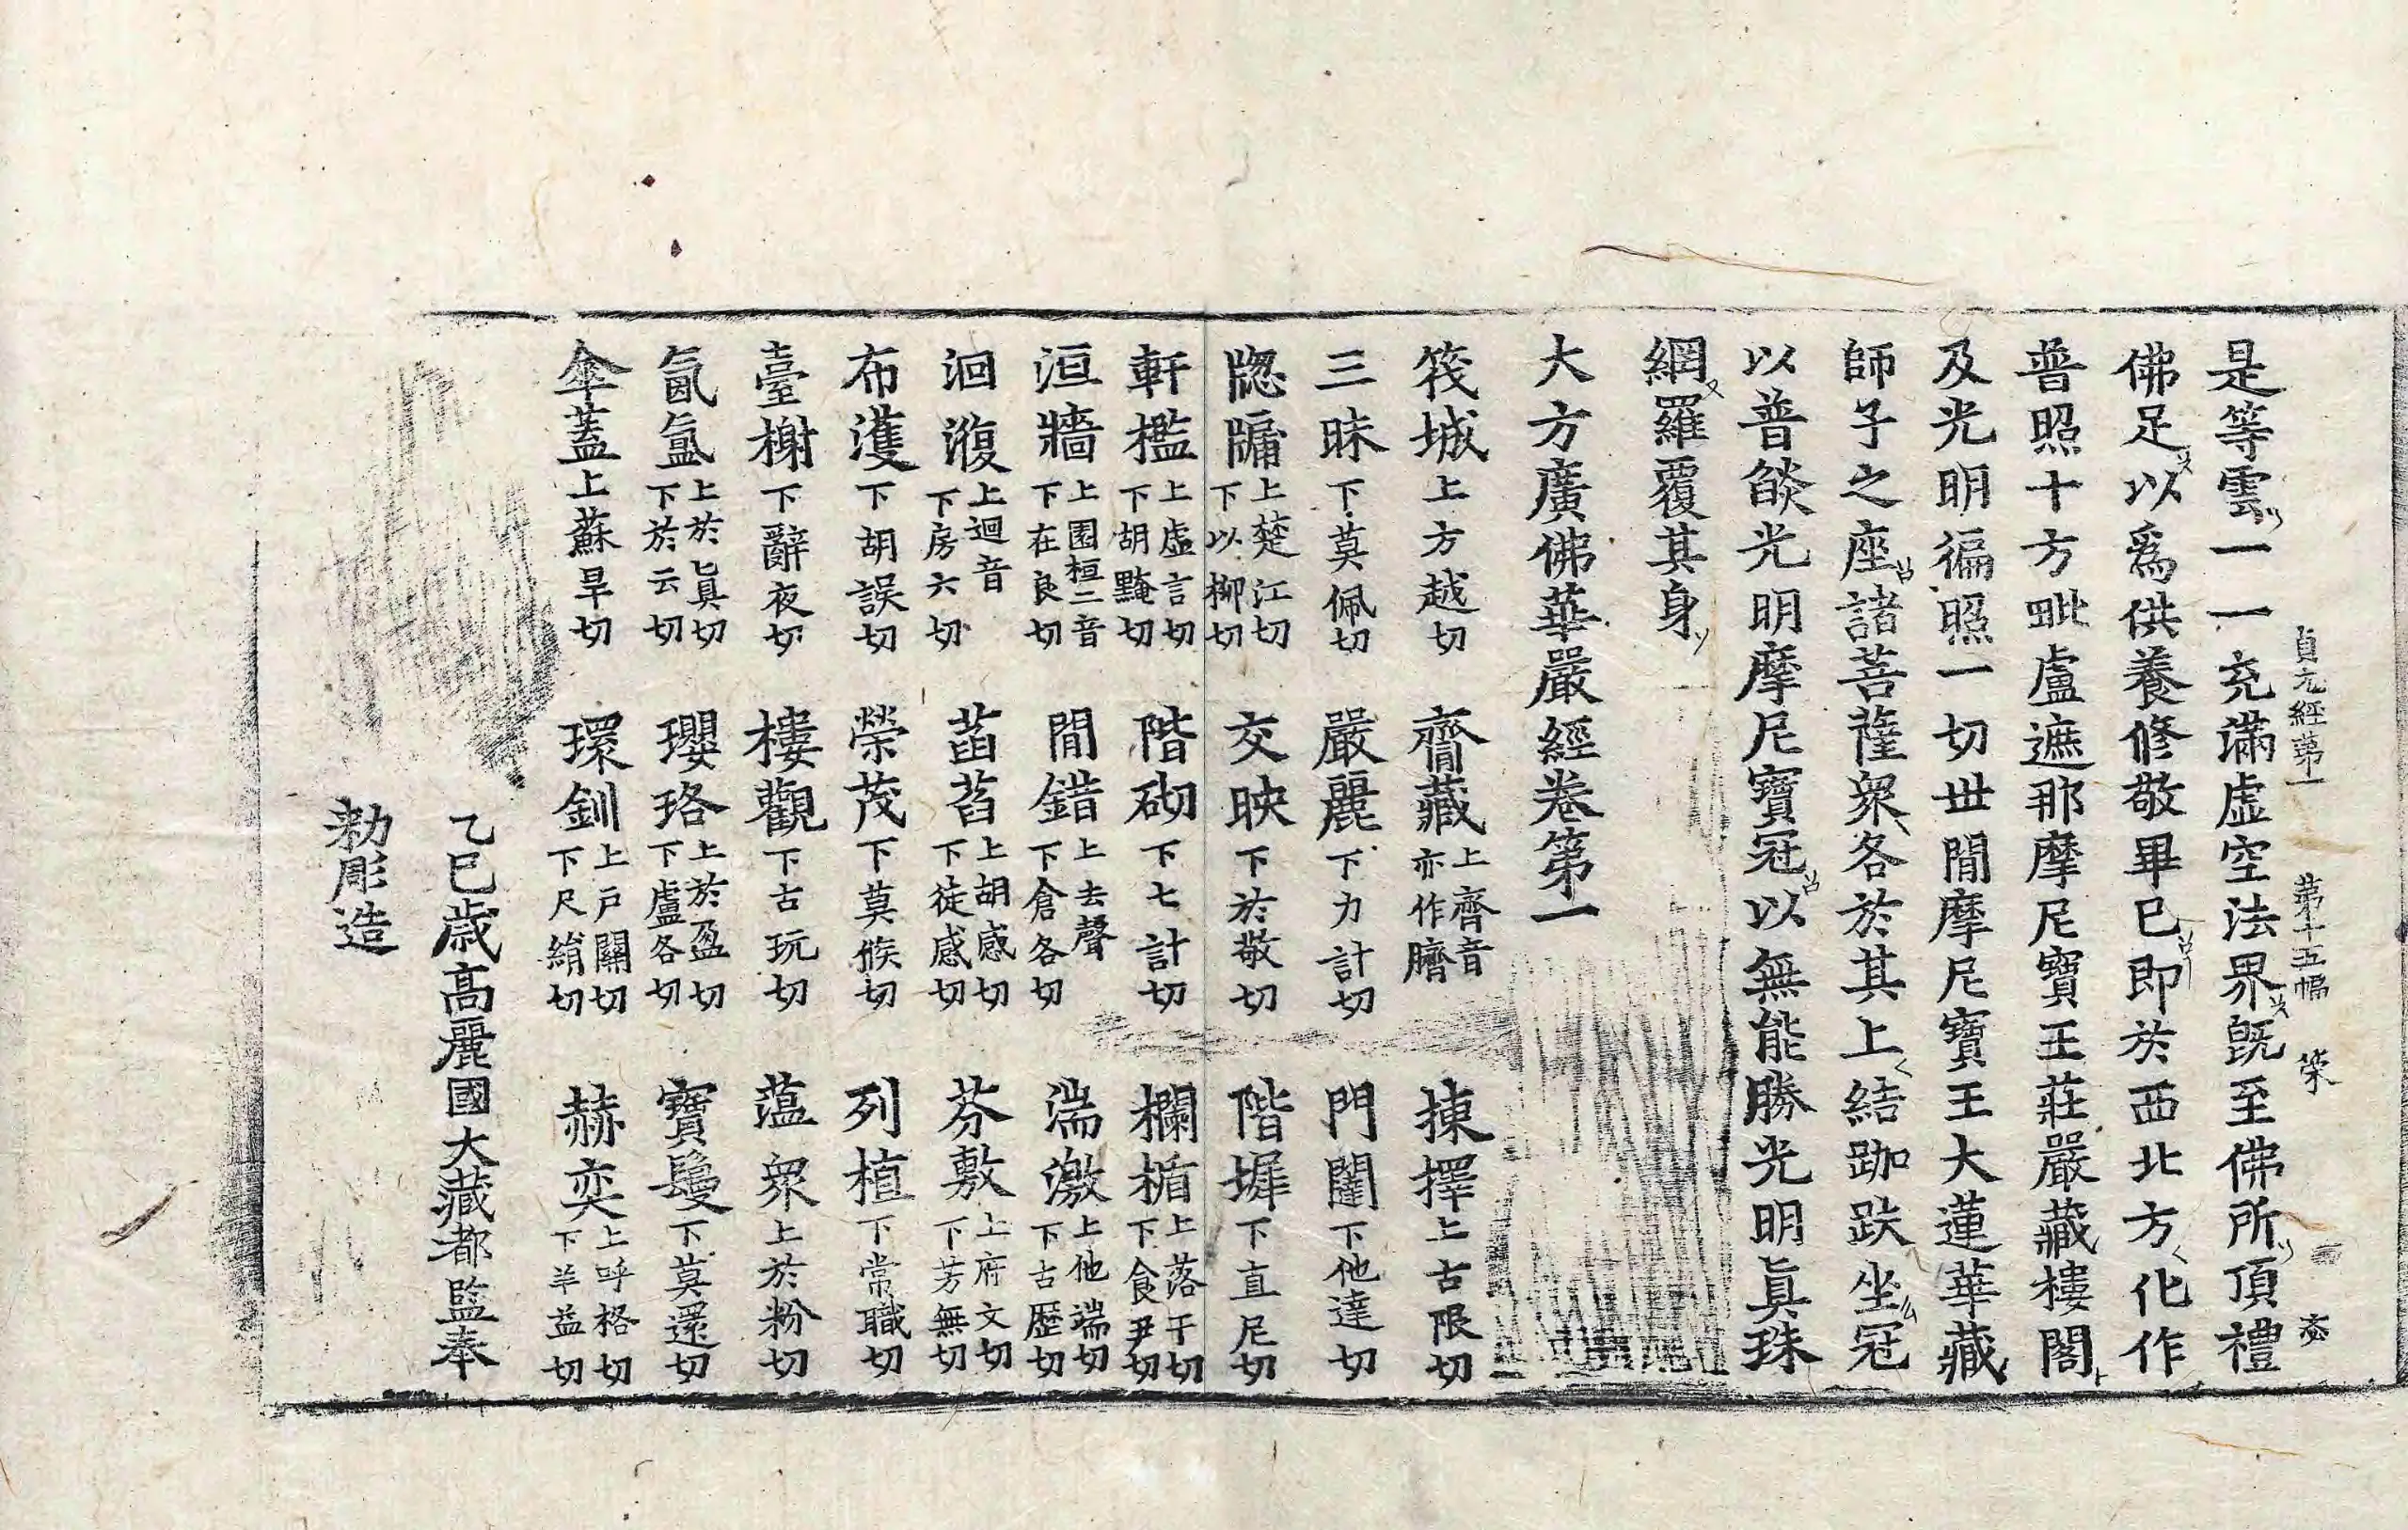 貞元經第一 第十五幅 榮
是等雲一一充滿虛空法界旣至佛所頂禮
佛足以爲供養修敬畢已即於西北方化作
普照十方毗盧遮那摩尼寶王莊嚴藏樓閣
及光明徧照一切世閒摩尼寶王大蓮華藏
師子之座諸菩薩衆各於其上結跏趺坐冠
以普燄光明摩尼寶冠以無能勝光明眞珠
網羅覆其身
大方廣佛華嚴經卷第一
筏城上方越切 齎藏上齊音亦作臍 揀擇上古限切
三昧下莫佩切 嚴麗下力計切 門闥下他達切
牎牖上楚江切下以柳切 交映下於敬切 階墀下直尼切
軒檻上虛言切下胡黤切 階砌下七計切 欄楯上落干切下食尹切
洹牆上園桓二音下在良切 閒錯上去聲下倉各切 湍激上他端切下古歷切
洄澓上迴音下房六切 菡萏上胡感切下徒感切 芬敷上府文切下芳無切
布濩下胡誤切 榮茂下莫候切 列植下常職切
臺榭下辭夜切 樓觀下古玩切 薀衆上於粉切
氤氳上於眞切下於云切 瓔珞上於盈切下盧各切 寶鬘下莫還切
傘蓋上蘇旱切 環釧上戶關切下尺絹切 赫奕上呼格切下羊益切
乙巳歲高麗國大藏都監奉
勅彫造